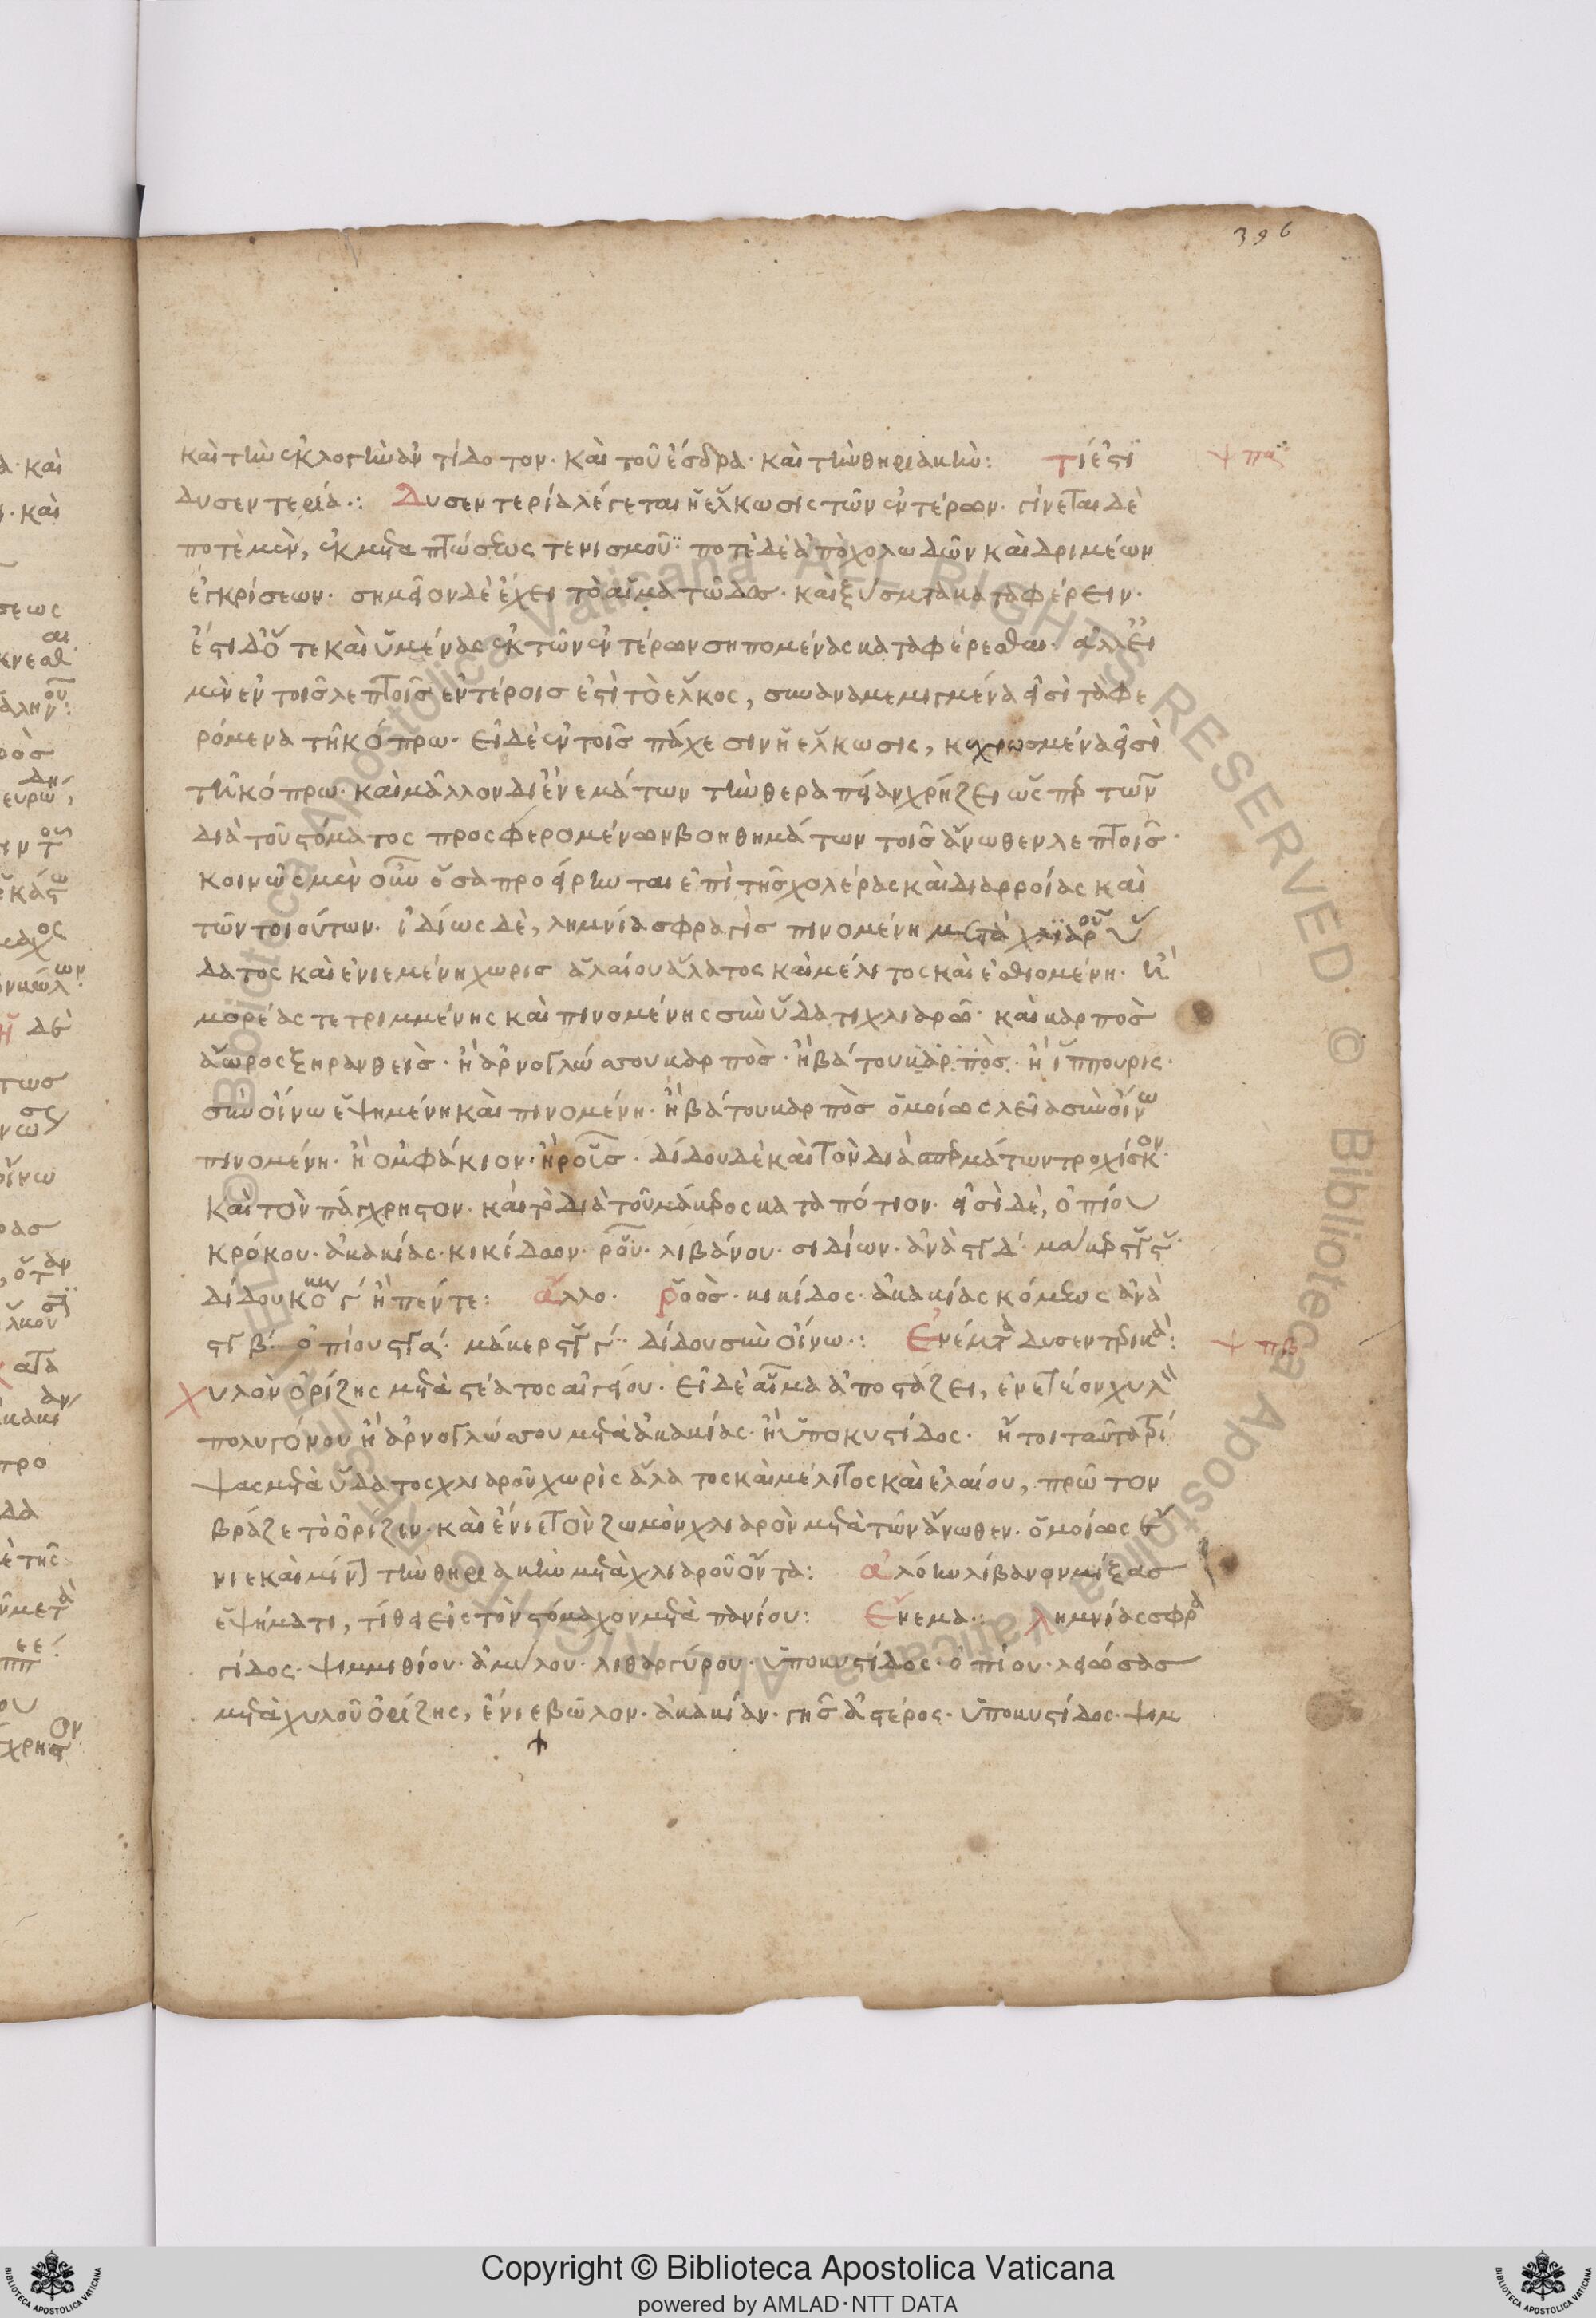 396
καὶ τὴν ἐκλογὴν ἀντίδοτον· καὶ τοῦ ἔσδρα· καὶ τὴν θηριακήν: τί ἐστι ψπα
δυσεντερία·: Δυσεντερία λέγεται ἡ ἕλκωσις τῶν ἐντέρων· γίνεται δὲ
ποτὲ μὲν, ἐκ μεταπτώσεως τενισμοῦ· ποτὲ δὲ ἀπὸ χολωδῶν καὶ δριμέων
ἐγκρίσεων· σημεῖον δὲ ἔχει τὸ αἱματῶδες· καὶ ξύσματα καταφέρειν·
ἔστι δ' ὅτε καὶ ὑμένας ἐκ τῶν ἐντέρων σηπομένας καταφέρεσθαι· ἀλλ' εἰ
μὲν ἐν τοῖς λεπτοῖς ἐντέροις ἐστὶ τὸ ἕλκος, συναναμεμιγμένα εἰσὶ τὰ φε
ρόμενα τῆ κόπρω· εἰ δὲ ἐν τοῖς πάχεσιν ἡ ἕλκωσις, κεχρωσμένα εἰσὶ
τῆ κόπρω· καὶ μᾶλλον δι' ἐνεμάτων τὴν θεραπείαν χρήζει ὡς περ τῶν
διὰ τοῦ στόματος προσφερομένων βοηθημάτων τοῖς ἄνωθεν λεπτοῖς·
κοινῶς μὲν οὖν ὅσα προείρηνται ἐπὶ τῆς χολέρας καὶ διαρροίας καὶ
τῶν τοιούτων· ἰδίως δὲ, λημνία σφραγὶς πινομένη μετὰ χλιαροῦ ὕ
δατος καὶ ἐνιεμένη χωρὶς ἁλαίου ἅλατος καὶ μέλιτος καὶ ἐσθιομένη· ἢ
μορέας τετριμμένης καὶ πινομένης σὺν ὕδατι χλιαρῶ· καὶ καρπὸς
ἄωρος ξηρανθεὶς· ἢ ἀρνογλώσσου καρπὸς· ἢ βάτου καρπὸς· ἢ ἵππουρις·
σὺν οἴνω ἑψημένη καὶ πινομένη· ἢ βάτου καρπὸς ὁμοίως λεῖα σὺν οἴνω
πινομένη· ἢ ὀμφάκιον· ἢ ροῦς· δίδου δὲ καὶ τὸν διὰ σπερμάτων τροχίσκον·
καὶ τὸν πάγχρηστον· καὶ τὸ διὰ τοῦ μάκερος καταπότιον· εἰσὶ δὲ, ὀπίου
κρόκου· ἀκακίας· κικίδων· ροῦν· λιβάνου· σιδίων· ἀνὰ στγ δ· μάκερ στγ ϛ·
δίδου κοκκία γ ἢ πέντε: ἄλλο· ῥοὸς· κικίδος· ἀκακίας κόμεως ἀνὰ
στγ β· ὀπίου στγ α· μάκερ στγ γ· δίδου σὺν οἴνω·: Ἐνέματα δυσεντερικά: ψπβ
Χυλὸν ὀρίζης μετὰ στέατος αἰγείου· εἰ δὲ αἷμα ἀποστάζει, ἐνετέον χυλὸν
πολυγόνου ἢ ἀρνογλώσσου μετὰ ἀκακίας· ἢ ὑποκυστίδος· ἤτοι ταῦτα τρί
ψας μετὰ ὕδατος χλιαροῦ χωρὶς ἅλατος καὶ μέλιτος καὶ ἐλαίου, πρῶτον
βράζε τὸ ὀρίζιν· καὶ ἐνίε τὸν ζωμὸν χλιαρὸν μετὰ τῶν ἄνωθεν· ὁμοίως ἔ
νιε καὶ μόνην τὴν θηριακὴν μετὰ χλιαροῦ ὄντα: ἀλόην λίβανον μίξας
ἑψήματι, τίθει εἰς τὸν στόμαχον μετὰ πανίου: Ἔνεμα·: λημνίας σφρα
γίδος· ψιμμιθίου· ἀμύλου· λιθαργύρου· ὑποκυστίδος· ὀπίου· λειώσας
μετὰ χυλοῦ ὀρίζης, ἐνίε βῶλον· ἀκακίαν· γῆς ἀστέρος· ὑποκυστίδος· ψιμ
Copyright © Biblioteca Apostolica Vaticana
powered by AMLAD·NTT DATA